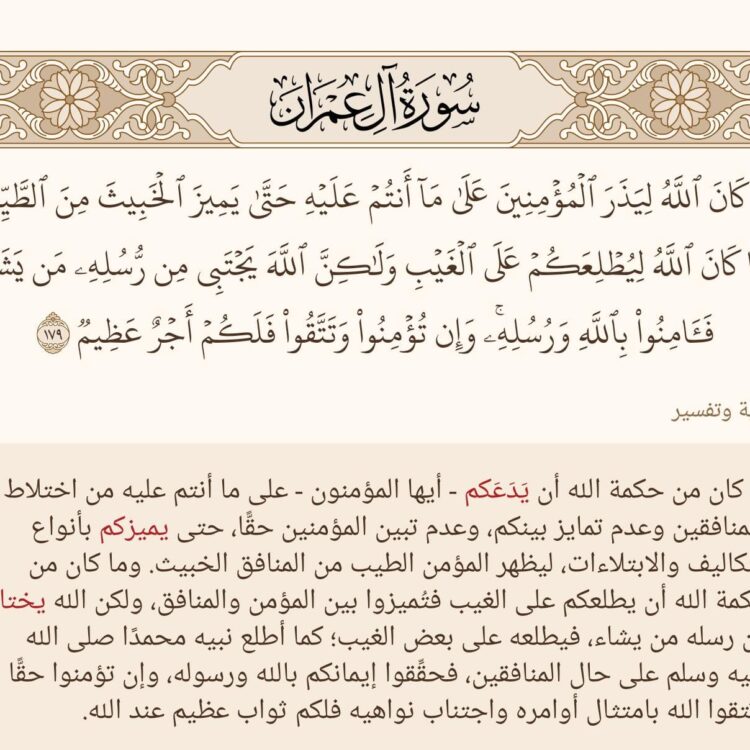 سُورَةُ آلِ عِمْرَانَ
كَانَ ٱللَّهُ لِيَذَرَ ٱلْمُؤْمِنِينَ عَلَىٰ مَآ أَنتُمْ عَلَيْهِ حَتَّىٰ يَمِيزَ ٱلْخَبِيثَ مِنَ ٱلطَّيِّ
كَانَ ٱللَّهُ لِيُطْلِعَكُمْ عَلَى ٱلْغَيْبِ وَلَٰكِنَّ ٱللَّهَ يَجْتَبِى مِن رُّسُلِهِۦ مَن يَشَ
فَـَٔامِنُوا۟ بِٱللَّهِ وَرُسُلِهِۦ ۚ وَإِن تُؤْمِنُوا۟ وَتَتَّقُوا۟ فَلَكُمْ أَجْرٌ عَظِيمٌ ١٧٩
ة وتفسير
كان من حكمة الله أن يَدَعَكم - أيها المؤمنون - على ما أنتم عليه من اختلاط
منافقين وعدم تمايز بينكم، وعدم تبين المؤمنين حقًّا، حتى يميزكم بأنواع
كاليف والابتلاءات، ليظهر المؤمن الطيب من المنافق الخبيث. وما كان من
كمة الله أن يطلعكم على الغيب فتُميزوا بين المؤمن والمنافق، ولكن الله يختا
ن رسله من يشاء، فيطلعه على بعض الغيب؛ كما أطلع نبيه محمدًا صلى الله
يه وسلم على حال المنافقين، فحقِّقوا إيمانكم بالله ورسوله، وإن تؤمنوا حقًّا
تتقوا الله بامتثال أوامره واجتناب نواهيه فلكم ثواب عظيم عند الله.